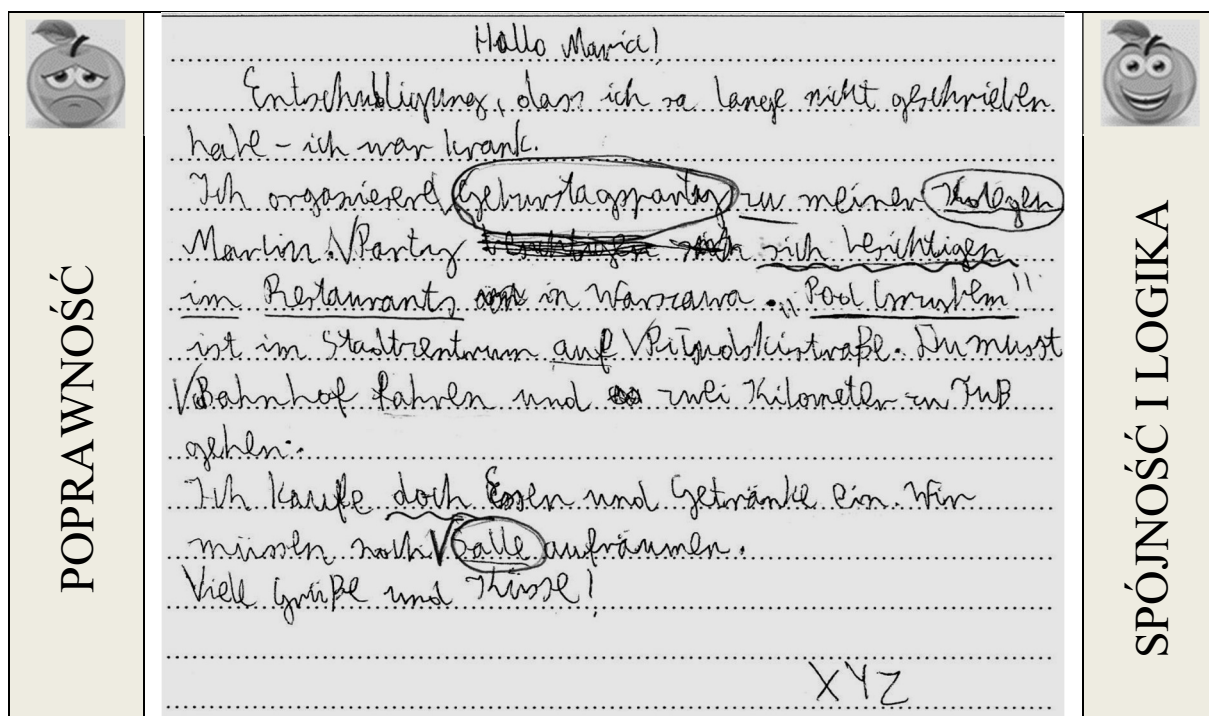 POPRAWNOŚĆ
Hallo Maria!
Entschubligung, dass ich so lange nicht geschrieben
habe - ich war krank.
Ich organisiere Geburstagsparty zu meiner Kolegen
Marlin. Party sich besichtigen
im Restaurants in Warszawa. "Pod
ist im Stadtzentrum auf Piłsudskistraße. Du musst
Bahnhof fahren und zwei Kilometer zu Fuß
gehen.
Ich kaufe doch Essen und Getränke ein. Wir
müssen noch Salle aufräumen.
Viele Grüße und Küsse!
XYZ
SPÓJNOŚĆ I LOGIKA